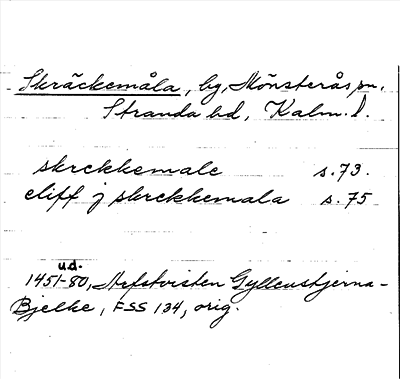 Skräckemåla, by, Mönsterås sn,
Stranda hd, Kalm. l.
skrekkemale s. 73.
eliff j skrekkemala s. 75
u.d.
1451-80, Arfstvisten Gyllenstjerna-
Bjelke, FSS 134, orig.